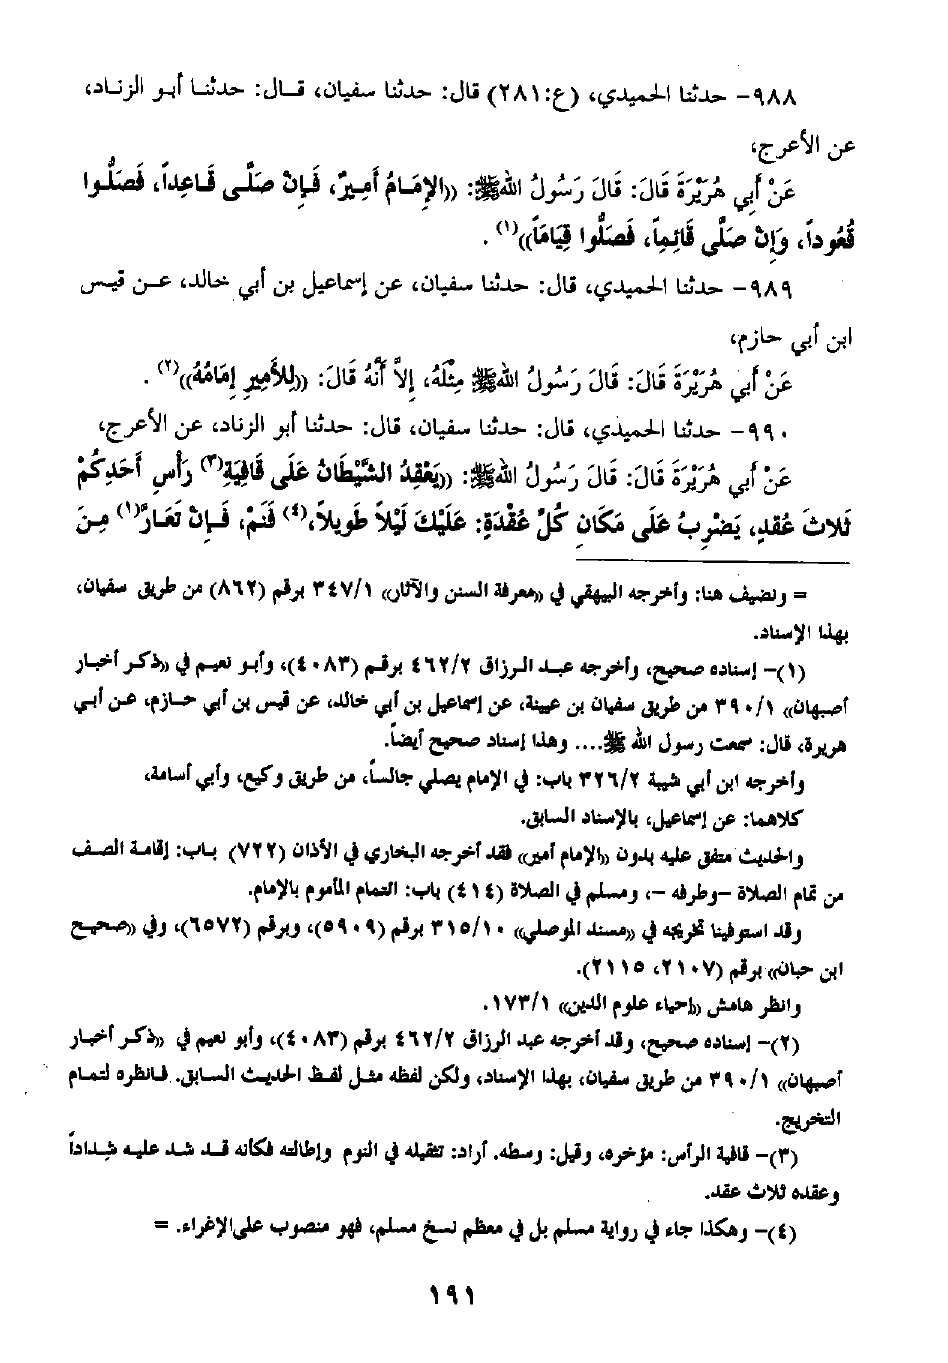 ٩٨٨- حدثنا الحميدي، (ع:٢٨١) قال: حدثنا سفيان، قال: حدثنا أبو الزناد،
عن الأعرج،
عَنْ أَبِي هُرَيْرَةَ قَالَ: قَالَ رَسُولُ اللهﷺ: ((الإِمَامُ أَمِيرٌ، فَإِنْ صَلَّى قَاعِداً، فَصَلُّوا
قُعُوداً، وَإِنْ صَلَّى قَائِماً، فَصَلُّوا قِيَاماً))(١) .
٩٨٩- حدثنا الحميدي، قال: حدثنا سفيان، عن إسماعيل بن أبي خالد، عن قيس
ابن أبي حازم،
عَنْ أَبِي هُرَيْرَةَ قَالَ: قَالَ رَسُولُ اللهﷺ مِثْلَهُ، إِلاَّ أَنَّهُ قَالَ: ((لِلأَمِيرِ إِمَامُهُ))(٢) .
٩٩٠- حدثنا الحميدي، قال: حدثنا سفيان، قال: حدثنا أبو الزناد، عن الأعرج،
عَنْ أَبِي هُرَيْرَةَ قَالَ: قَالَ رَسُولُ اللهﷺ: ((يَعْقِدُ الشَّيْطَانُ عَلَى قَافِيَةِ(٣) رَأْسِ أَحَدِكُمْ
ثَلاثَ عُقَدٍ، يَضْرِبُ عَلَى مَكَانِ كُلِّ عُقْدَةٍ: عَلَيْكَ لَيْلاً طَوِيلاً،(٤) فَنَمْ، فَإِنْ تَعَارَّ(١) مِنَ
= ونضيف هنا: وأخرجه البيهقي في ((معرفة السنن والآثار)) ٣٤٧/١ برقم (٨٦٢) من طريق سفيان،
بهذا الإسناد.
(١)- إسناده صحيح، وأخرجه عبد الرزاق ٤٦٢/٢ برقم (٤٠٨٣)، وأبو نعيم في ((ذكر أخبار
أصبهان)) ٣٩٠/١ من طريق سفيان بن عيينة، عن إسماعيل بن أبي خالد، عن قيس بن أبي حازم، عن أبي
هريرة، قال: سمعت رسول الله ﷺ.... وهذا إسناد صحيح أيضاً.
وأخرجه ابن أبي شيبة ٣٢٦/٢ باب: في الإمام يصلي جالساً، من طريق وكيع، وأبي أسامة،
كلاهما: عن إسماعيل، بالإسناد السابق.
والحديث متفق عليه بدون ((الإمام أمير)) فقد أخرجه البخاري في الأذان (٧٢٢) باب: إقامة الصف
من تمام الصلاة -وطرفه -، ومسلم في الصلاة (٤١٤) باب: ائتمام المأموم بالإمام.
وقد استوفينا تخريجه في ((مسند الموصلي)) ٣١٥/١٠ برقم (٥٩٠٩)، وبرقم (٦٥٧٢)، وفي ((صحيح
ابن حبان)) برقم (٢١٠٧، ٢١١٥).
وانظر هامش ((إحياء علوم الدين)) ١٧٣/١.
(٢)- إسناده صحيح، وقد أخرجه عبد الرزاق ٤٦٢/٢ برقم (٤٠٨٣)، وأبو نعيم في ((ذكر أخبار
أصبهان)) ٣٩٠/١ من طريق سفيان، بهذا الإسناد، ولكن لفظه مثل لفظ الحديث السابق. فانظره لتمام
التخريج.
(٣)- قافية الرأس: مؤخره، وقيل: وسطه. أراد: تثقيله في النوم وإطالته فكأنه قد شد عليه شِداداً
وعقده ثلاث عقد.
(٤)- وهكذا جاء في رواية مسلم بل في معظم نسخ مسلم، فهو منصوب على الإغراء. =
١٩١